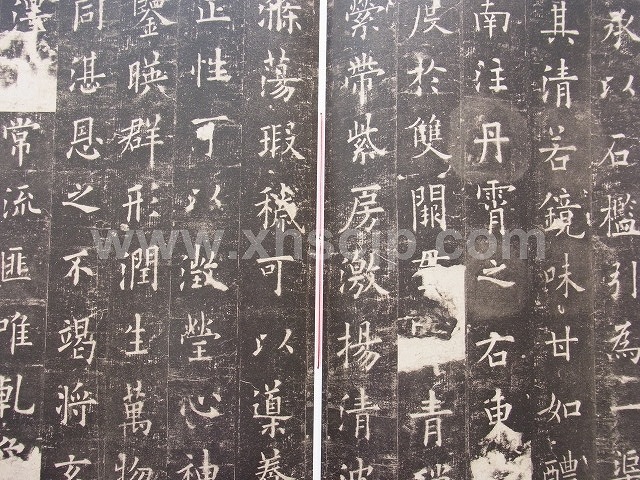 承以石檻引為一渠
其清若鏡味甘如醴
南注丹霄之右東
度於雙闕青瑣
縈帶紫房激揚清波
滌蕩瑕穢可以導養
正性可以澂瑩心神
鑒暎群形潤生萬物
同湛恩之不竭將玄
澤常流匪唯乹象